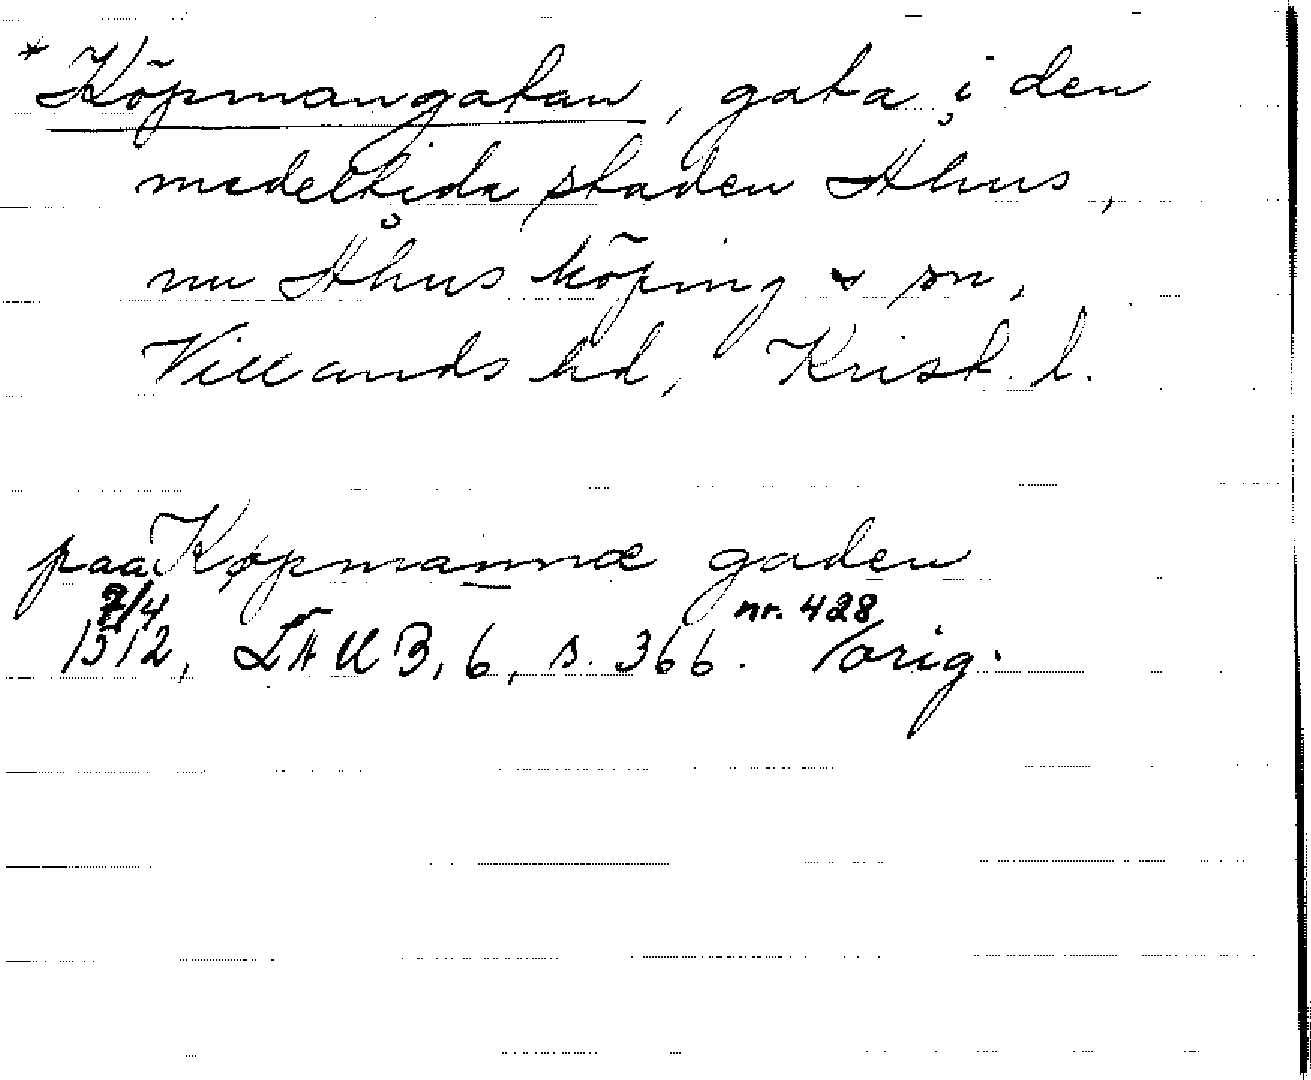 * Köpmangatan, gata i den
medeltida staden Åhus,
nu Åhus köping & sn,
Villands hd, Krist. l.
paa Køpmannæ gaden
7/4 nr. 428
1512, LÄUB, 6, s. 366. /orig.